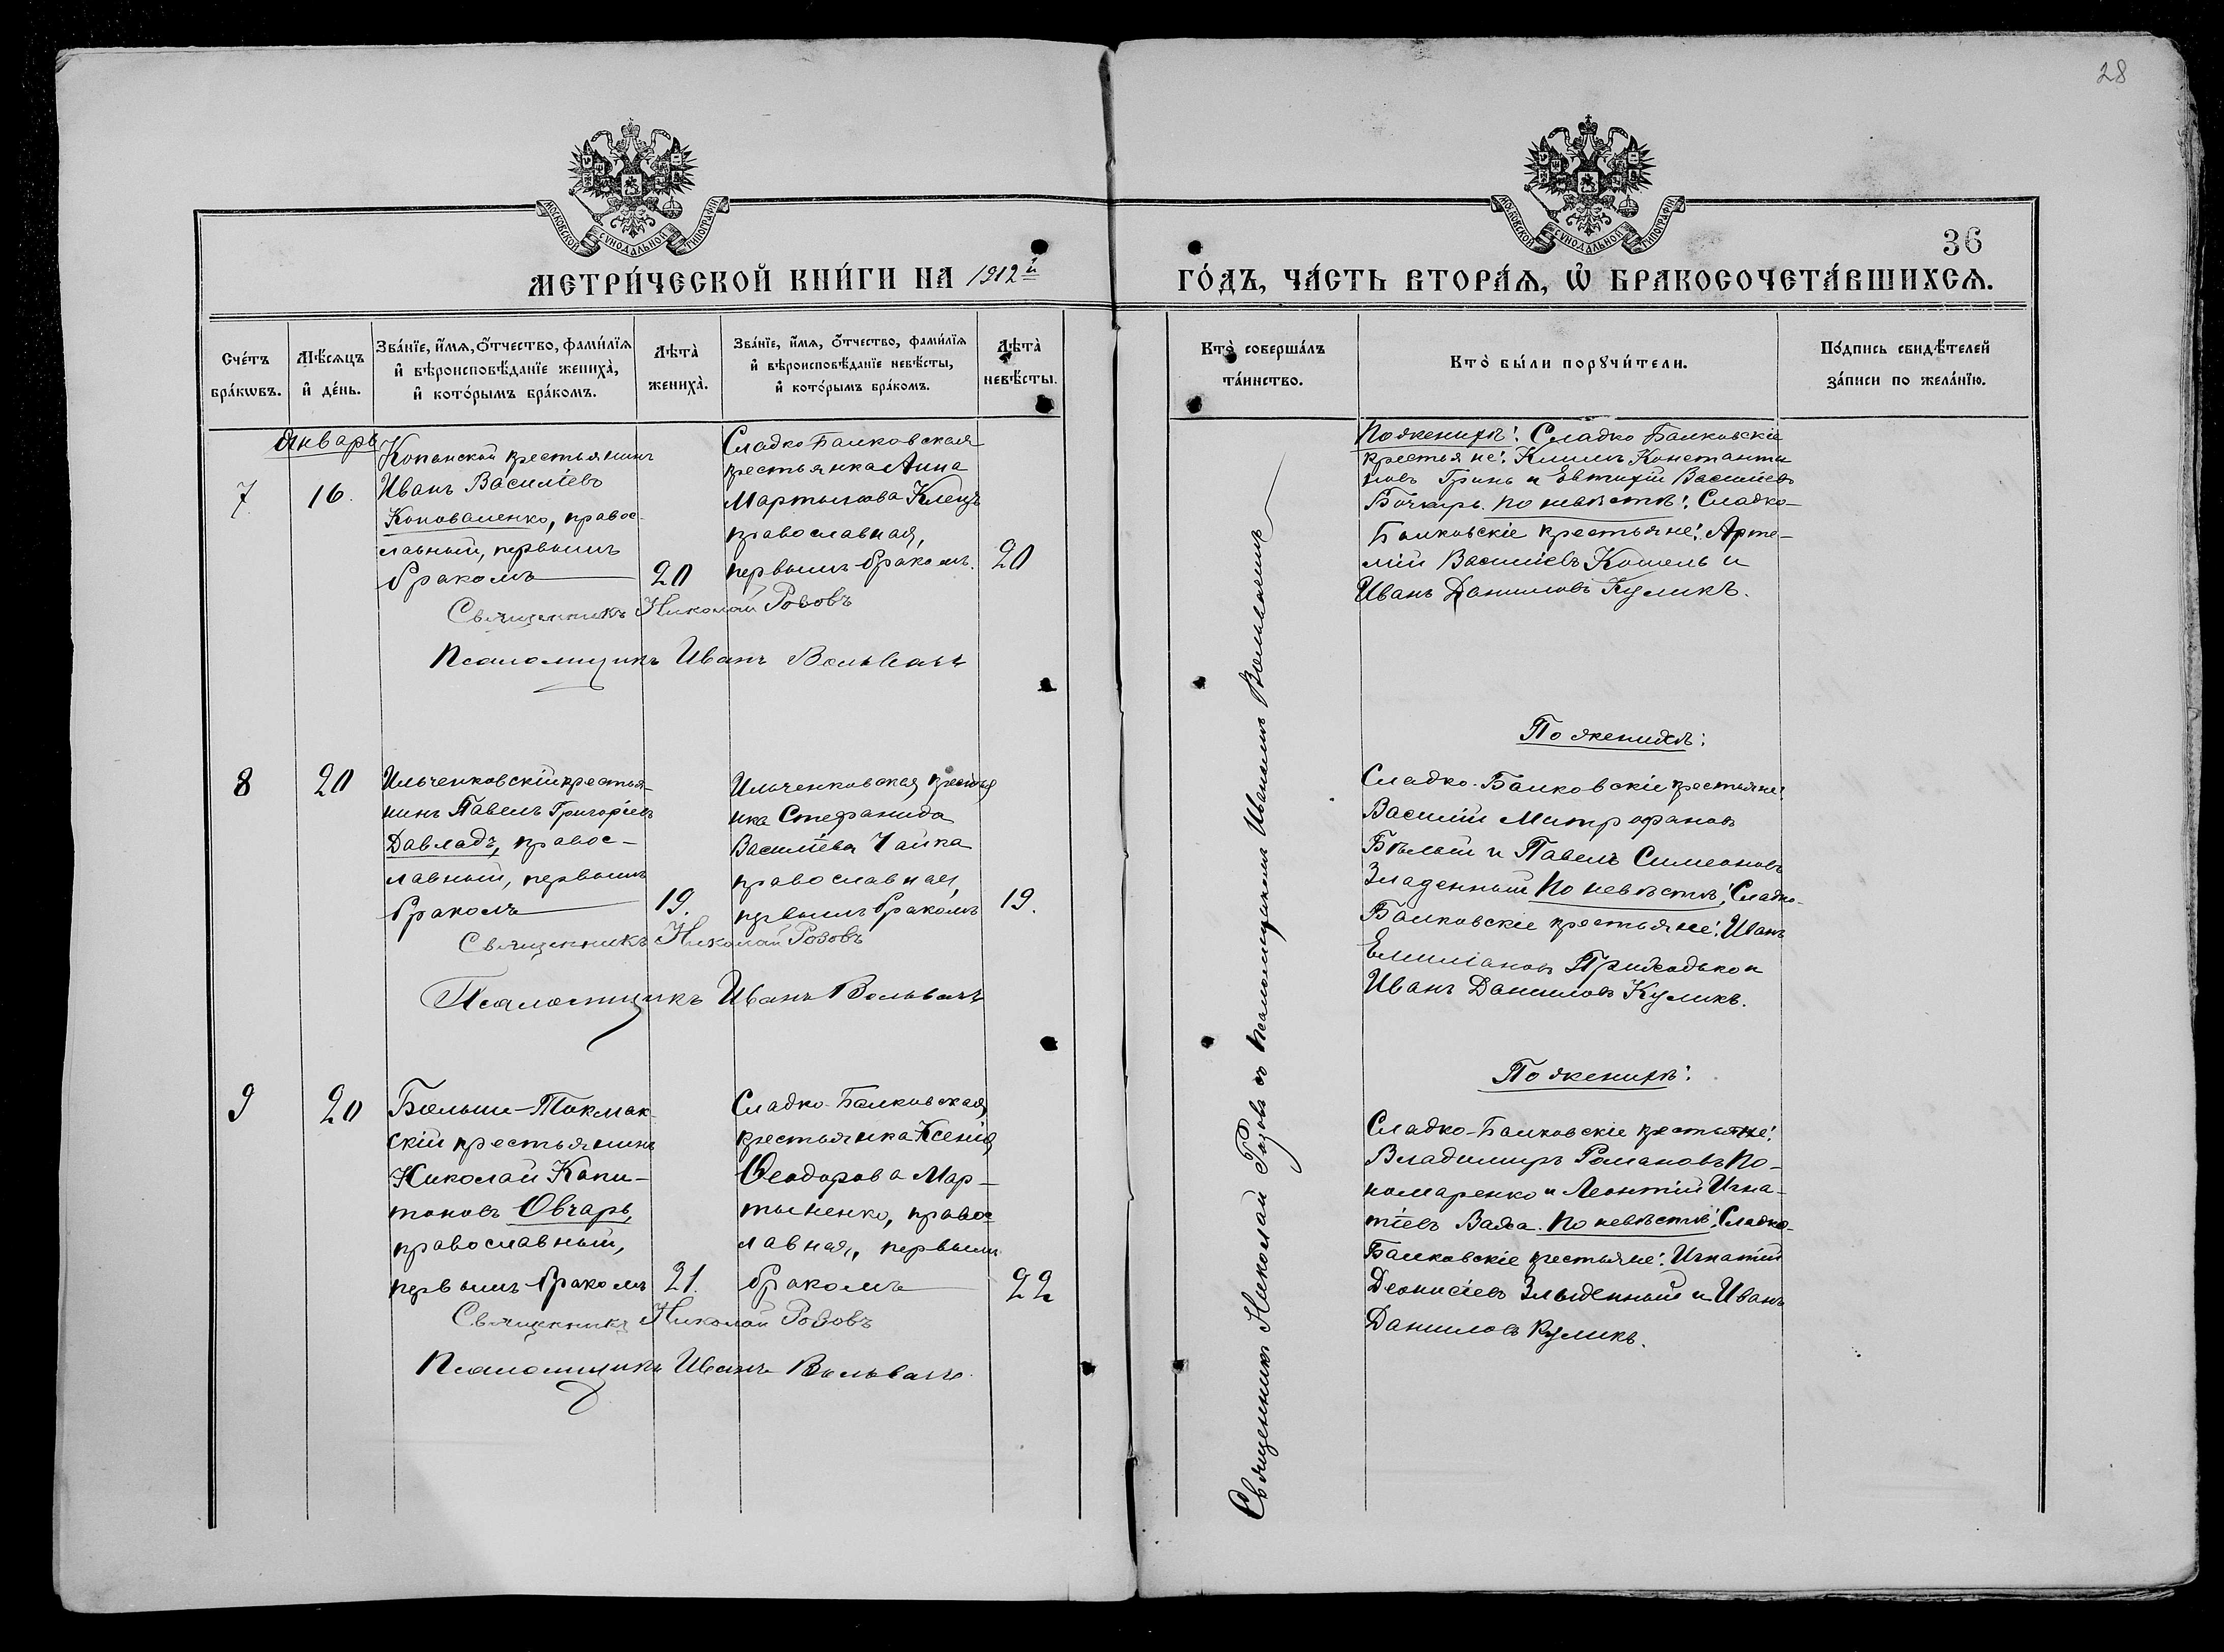 28
МОСКОВСКОЙ СУНОДАЛЬНОЙ ТИПОГРАФІИ
МОСКОВСКОЙ СУНОДАЛЬНОЙ ТИПОГРАФІИ
36
МЕТРИ́ЧЕСКОЙ КНИ́ГИ НА 1912й
ГО́ДЪ, ЧА́СТЬ ВТОРА́Ѧ, Ѽ БРАКОСОЧЕТА́ВШИХСѦ.
Сче́тъ бра́кѡвъ.
Мѣ́сѧцъ и҆ де́нь.
Зва́нїе, и҆́мѧ, ѻ҆́тчество, фами́лїѧ
и҆ вѣроисповѣ́данїе жениха̀,
и҆ кото́рымъ бра́комъ.
Лѣта̀ жениха̀.
Зва́нїе, и҆́мѧ, ѻ҆́тчество, фами́лїѧ
и҆ вѣроисповѣ́данїе невѣ́сты,
и҆ кото́рымъ бра́комъ.
Лѣта̀ невѣ́сты.
Кто̀ соверша́лъ
та́инство.
Кто̀ бы́ли порꙋчи́тели.
По́дпись свидѣ́телей
за́писи по жела́нїю.
Январь
7
16.
Копанской крестьянинъ
Иванъ Василіевъ
Коноваленко, правос-
лавный, первымъ
бракомъ
20
Сладко Балковская
крестьянка Анна
Мартынова Клецъ
православная,
первымъ бракомъ.
20
Священникъ Николай Розовъ
Псаломщикъ Иванъ Вольвачъ
По женихѣ: Сладко Балковскіе
крестьяне: Климъ Константи
новъ Гринь и Евтихій Василіевъ
Бочкарь. По невѣстѣ: Сладко-
Балковскіе крестьяне: Арте-
мій Василіевъ Кошель и
Иванъ Даниловъ Куликъ.
8
20
Ильченковскій крестья-
нинъ Павелъ Григоріевъ
Давладъ, правос-
лавный, первымъ
бракомъ
19.
Ильченковская крестья
нка Стефанида
Василіева Чайка
православная,
первымъ бракомъ
19.
Священникъ Николай Розовъ
Псаломщикъ Иванъ Вольвачъ
По женихѣ:
Сладко-Балковскіе крестьяне:
Василій Митрофановъ
Бѣлый и Павелъ Симеоновъ
Зладенный По невѣстѣ: Сладко-
Балковскіе крестьяне: Иванъ
Емиліановъ Приходько и
Иванъ Даниловъ Куликъ.
9
20
Больше-Токмак
скій крестьянинъ
Николай Капи-
тоновъ Овчаръ,
православный,
первымъ бракомъ
21.
Сладко-Балковская
крестьянка Ксенія
Ѳеодорова Мар-
тыненко, правос
лавная, первымъ
бракомъ
22
Священникъ Николай Розовъ
Псаломщикъ Иванъ Вольвачъ.
По женихѣ:
Сладко-Балковскіе крестьяне:
Владимиръ Романовъ По-
номаренко и Леонтій Игна-
тіевъ Ваха. По невѣстѣ: Сладко-
Балковскіе крестьяне: Игнатій
Деонисіевъ Злыденный и Иванъ
Даниловъ Куликъ.
Священникъ Николай Розовъ съ псаломщикомъ Иваномъ Вольвачемъ